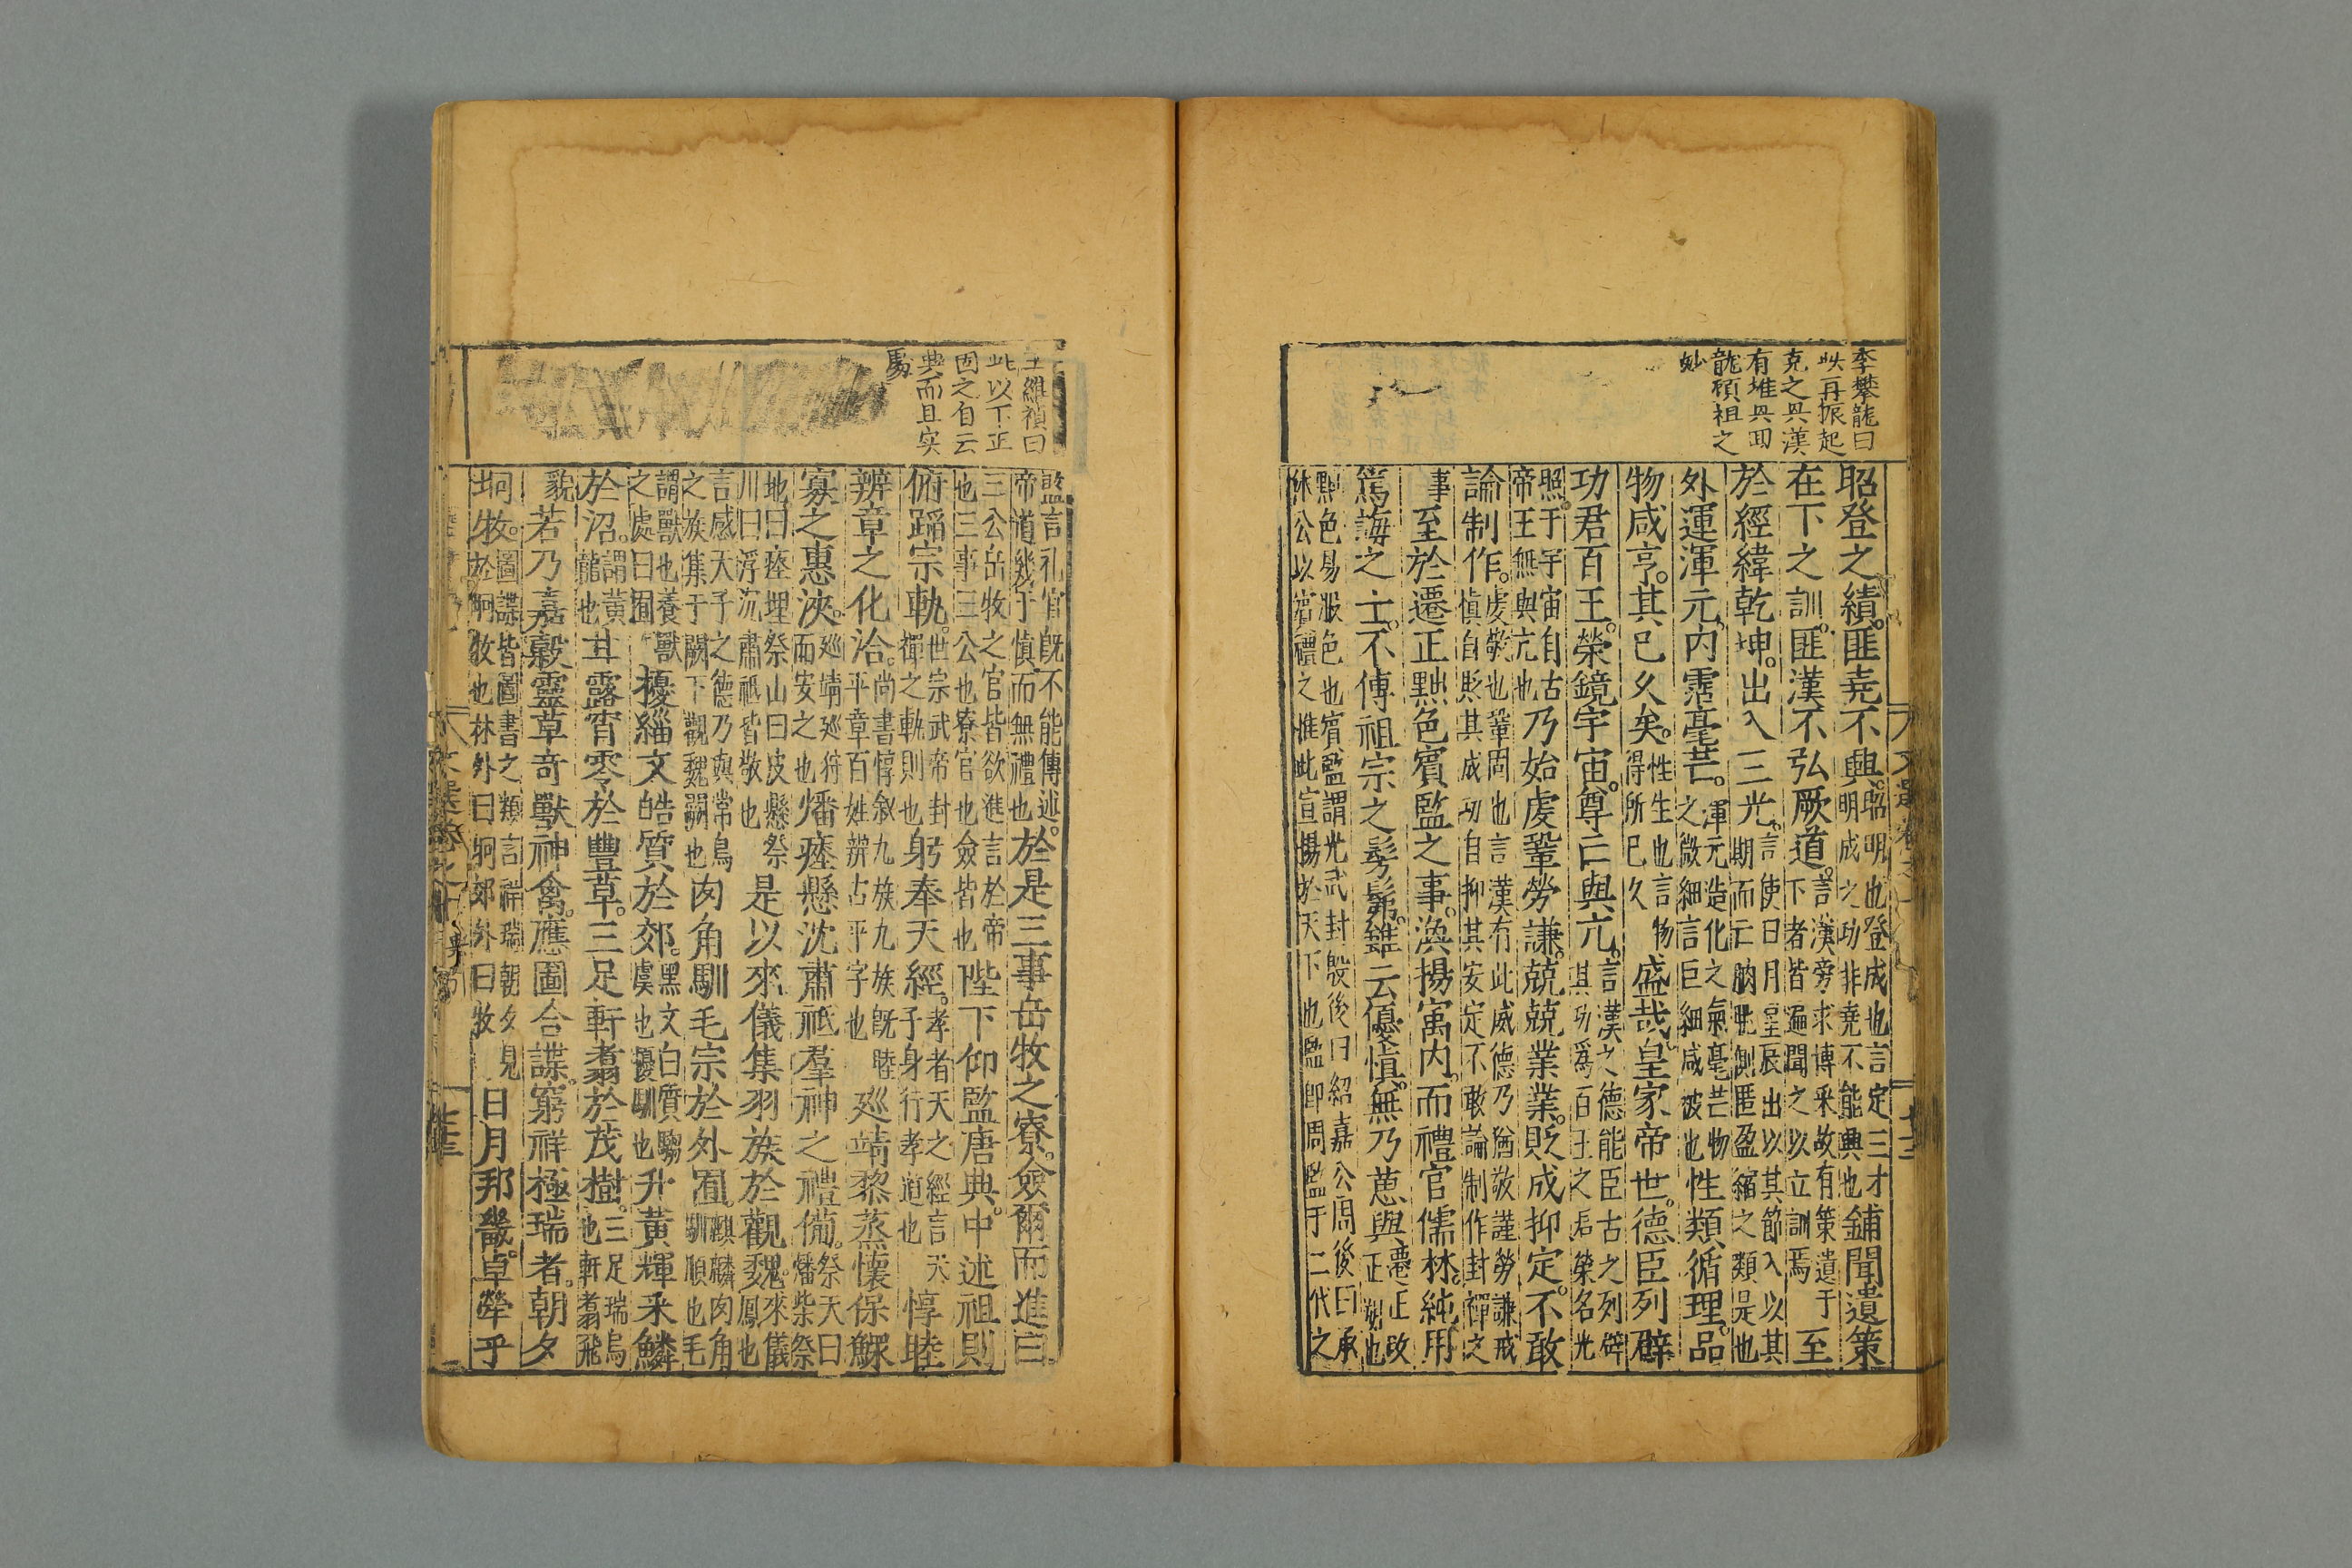 李攀龍曰
此再振起
克之與漢
有堆與回
龍碩祖之
妙
昭登之績。匪堯不興。昭明也登成也言定三才明成之功非堯不能興也鋪聞遺策
在下之訓。匪漢不弘厥道。言漢旁求博采故有策遺于下者皆遍聞之以立訓焉至
於經緯乾坤。出入三光。言使日月星辰出以其節入以其期而亡朒朓側匿盈縮之類是也
外運渾元。內霑毫芒。渾元造化之氣毫芒物之微細言巨細咸被也性類循理。品
物咸亨。其已久矣。性生也言物得所已久盛哉。皇家帝世。德臣列辟
功君百王。榮鏡宇宙。尊亡與亢。言漢之德能臣古之列辟其功為百王之君榮名光
照于宇宙自古帝王無與亢也乃始虔鞏勞謙。兢兢業業。貶成抑定。不敢
論制作。虔敬也鞏固也言漢有此威德乃猶敬謹勞謙戒慎自貶其成功自抑其安定不敢論制作封禪之
事至於遷正黜色賓監之事。渙揚寓內。而禮官儒林。純用
篤誨之士。不傳祖宗之髣髴。雖云優慎。無乃葸與遷正改正朔也
黜色易服色也賓監謂光武封殷後曰紹嘉公周後曰承休公以賓禮之惟此宣揚於天下也監即周監于二代之
王維禎曰
此以下正
固之自云
典而且実
處
監言礼官既不能傳述。帝道幾于慎而無禮也於是三事岳牧之寮。僉爾而進曰
三公岳牧之官皆欲進言於帝也三事三公也寮官也僉皆也陛下仰監唐典。中述祖則
俯蹈宗軌。世宗武帝封禪之軌則也躬奉天經。孝者天之經言天子身行孝道也惇睦
辨章之化洽。尚書惇叙九族九族既睦平章百姓辨古平字也巡靖黎蒸懷保鰥
寡之惠浹。巡靖巡狩而安之也燔瘞懸沈肅祗羣神之禮備。祭天曰燔柴祭
地曰瘞埋祭山曰庋懸祭川曰浮沉肅祗皆敬也是以來儀集羽族於觀魏。來儀鳳也
言感天子之德乃與常鳥之族集于闕下觀魏闕也肉角馴毛宗於外囿。麒麟肉角馴順也毛
謂獸也養獸之處曰囿擾緇文皓質於郊。黑文白質騶虞也擾馴也升黃輝采鱗
於沼。謂黃龍也甘露宵零於豐草。三足軒翥於茂樹。三足瑞烏也軒翥飛
貌若乃嘉穀靈草奇獸神禽。應圖合諜。窮祥極瑞者。朝夕
坰牧。圖諜皆圖書之類言祥瑞朝夕見於坰牧也林外曰坰郊外曰牧日月邦畿。卓犖乎